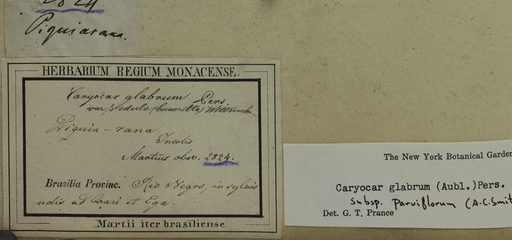 2824
Piquiarana.
HERBARIUM REGIUM MONACENSE.
Caryocar glabrum Pers.
var. edule Wittmack
Piquia-rana
Incolis
Martius obs. 2824.
Brasilia Provinc. Rio Negro, in sylvis
udis ad et Ega.
Martii iter brasiliense.
The New York Botanical Garden
Caryocar glabrum (Aubl.) Pers.
subsp. parviflorum (A.C.Smit
Det. G. T. Prance